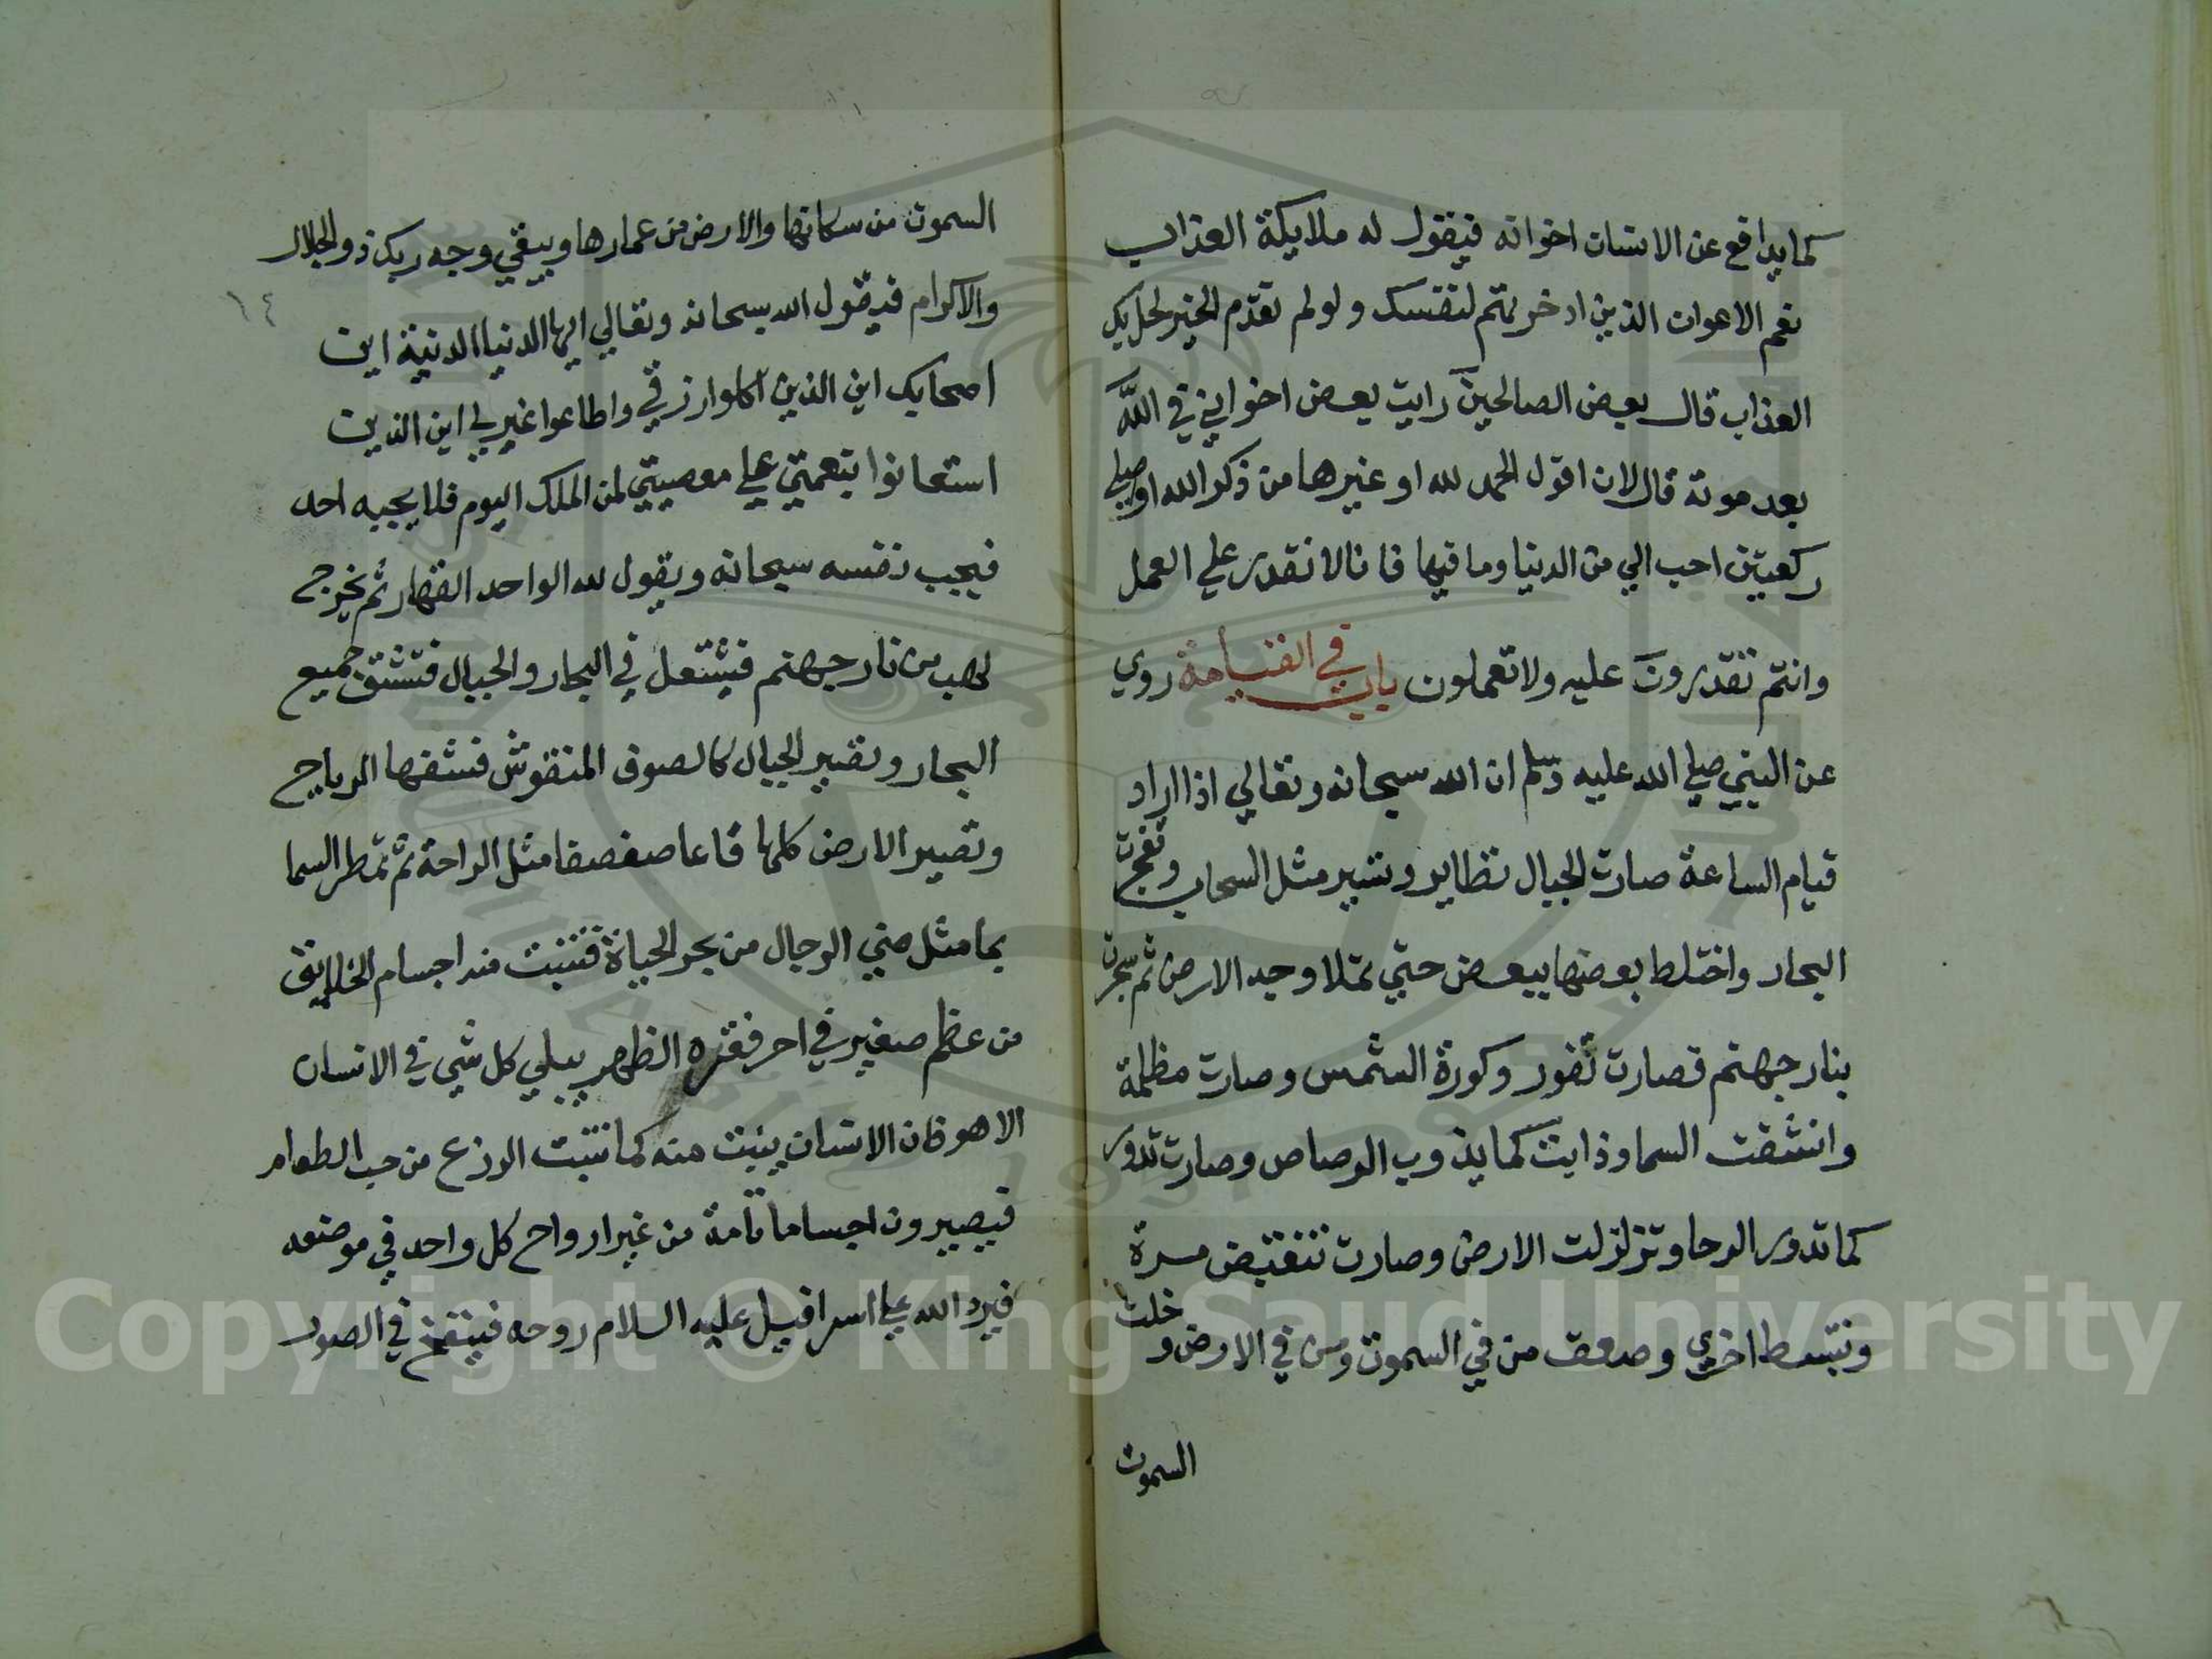 كما يدافع عن الانسان اخوانه فيقول له ملايكة العذاب
نعم الاعوان الذين ادخرتهم لنفسك ولولم تقدم الخير لحل بك
العذاب قال بعض الصالحين رايت بعض اخواني في الله
بعد موته قال لان اقول الحمد لله او غيرها من ذكر الله اوصلي
ركعتين احب الي من الدنيا وما فيها فانا لا نقدر علي العمل
وانتم تقدرون عليه ولا تعملون باب في القيامة روي
عن النبي صلي الله عليه وسلم ان الله سبحانه وتعالي اذا اراد
قيام الساعة صارت الجبال تطاير وتسير مثل السحاب وتفجرت
البحار واختلط بعضها ببعض حتي تملا وجه الارض ثم سجرت
بنار جهنم فصارت تفور وكورة الشمس وصارت مظلمة
وانشقت السما وذابت كما يذوب الرصاص وصارت تدور
كما تدور الرحا وتزلزلت الارض وصارت تنقبض مرة
وتبسط اخري وصعق من في السموت ومن في الارض وخلت
السموت
السموت من سكانها والارض من عمارها ويبقي وجه ربك ذو الجلال
والاكرام فيقول الله سبحانه وتعالي ايها الدنيا الدنية اين
١٤
اصحابك اين الذين اكلوا رزقي واطاعوا غيري اين الذين
استعانوا بنعمتي علي معصيتي لمن الملك اليوم فلا يجيبه احد
فيجيب نفسه سبحانه ويقول لله الواحد القهار ثم يخرج
لهب من نار جهنم فيشتعل في البحار والجبال فتنشق جميع
البحار وتصير الجبال كالصوف المنفوش فنشفها الرياح
وتصير الارض كلها قاعا صفصفا مثل الراحة ثم تمطر السما
بما مثل مني الرجال من بحر الحياة فتنبت منه اجسام الخلايق
من عظم صغير في اخر فقرة الظهر يبلي كل شي في الانسان
الا هو فان الانسان ينبت منه كما تنبت الزرع من حب الطعام
فيصيرون اجساما تامة من غير ارواح كل واحد في موضعه
فيرد الله علي اسرافيل عليه السلام روحه فينفخ في الصور
Copyright © King Saud University
1957